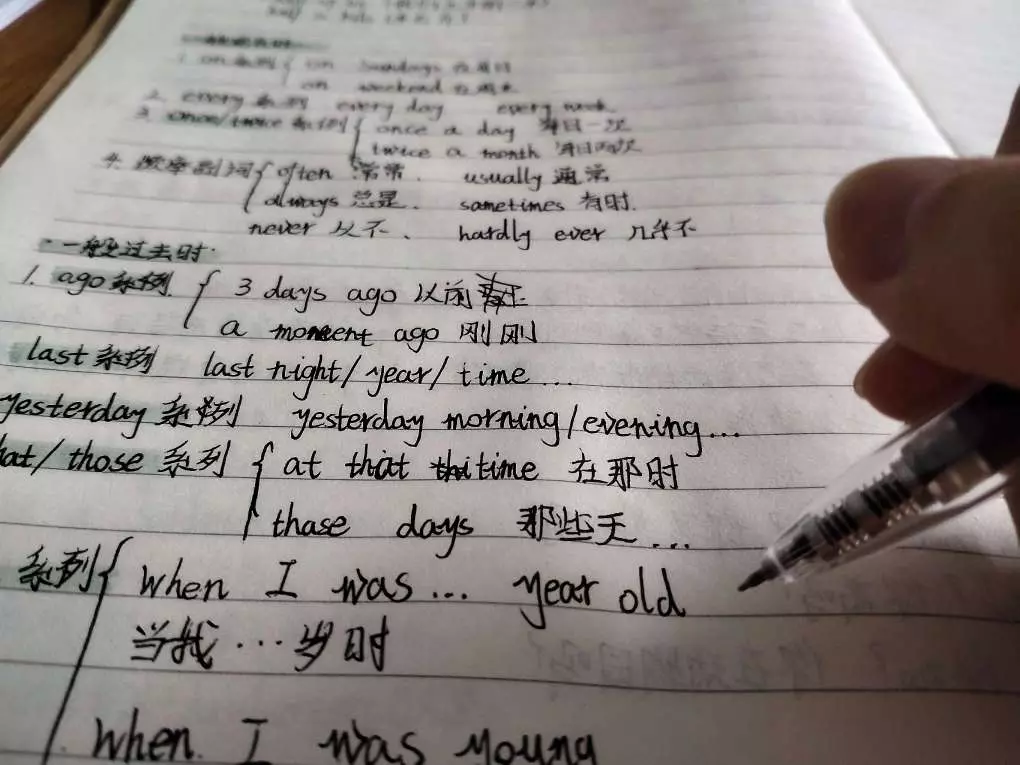 1. on系列 { on Sundays 在周日
on weekend 在周末
2. every系列 every day every week
3. once/twice系列 { once a day 每日一次
twice a month 每月两次
4. 频率副词 { often 常常、 usually 通常
always 总是、 sametimes 有时.
never 从不、 hardly ever 几乎不
·一般过去时·
1. ago系列 { 3 days ago 以前
a moment ago 刚刚
last系列 last night/year/time...
yesterday系列 yesterday morning/evening...
hat/those系列 { at that time 在那时
thase days 那些天...
系列 { when I was... year old
当找…岁时
when I was young